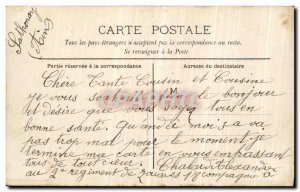 CARTE POSTALE
Tous les pays étrangers n'acceptent pas la correspondance au recto.
Se renseigner à la Poste
Partie réservée à la correspondance
Adresse du destinataire
(Ain)
Chère Tante Cousin et Cousine
je vous le bonjour
et désire que vous soyez tous en
bonne santé. Quand à moi ça va
pas trop mal pour le moment je
termine ma carte en vous embrassant
tous de tout cœur. Alexandre
au 2e régiment de zouaves compagnie
M